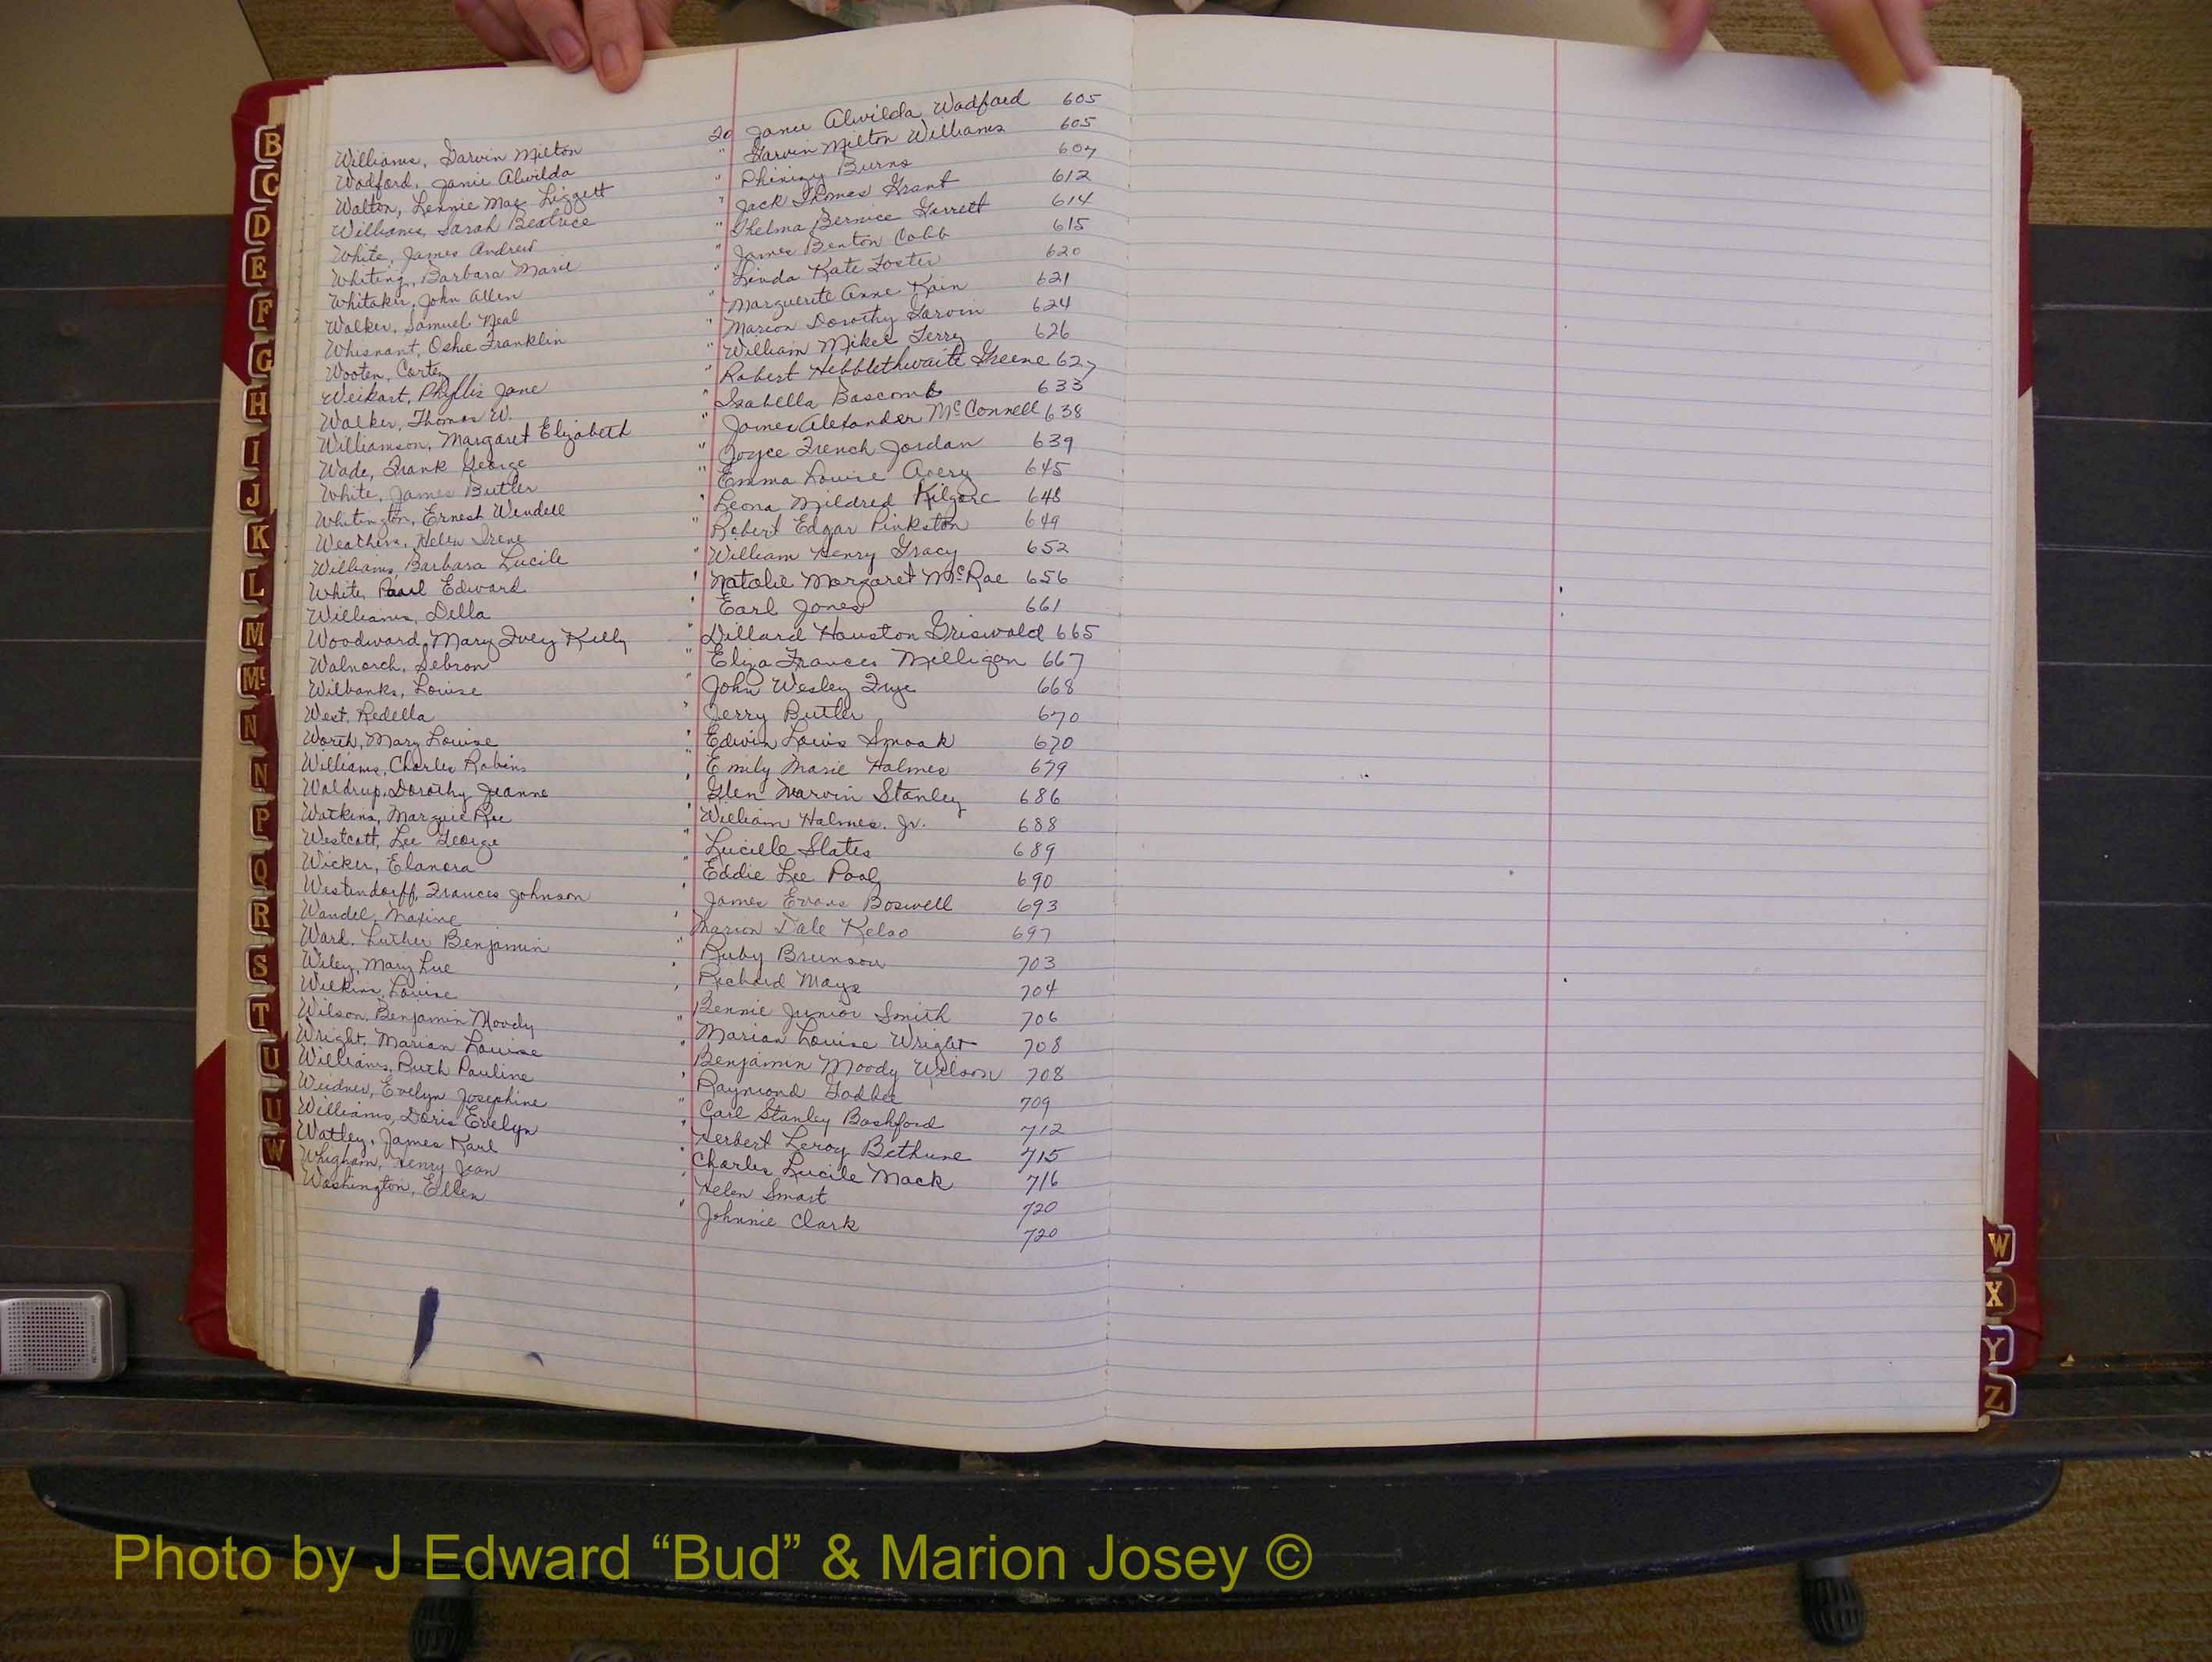 Williams, Garvin Milton 20 Janie Alwilda Wadford 605
Wadford, Janie Alwilda " Garvin Milton Williams 605
Walton, Lennie Mae Liggett " Phinizy Burns 607
Williams, Sarah Beatrice " Jack Thomas Grant 612
White, James Andrew " Thelma Bernice Garrett 614
Whiting, Barbara Marie " James Benton Cobb 615
Whitaker, John Allen " Linda Kate Foster 620
Walker, Samuel Neal " Marguerite Anne Kain 621
Whisnant, Oshie Franklin " Marion Dorothy Garvin 624
Wooten, Cortez " William Mikel Terry 626
Weikart, Phyllis Jane " Robert Hebblethwaite Greene 627
Walker, Thomas W. " Isabella Bascomb 633
Williamson, Margaret Elizabeth " James Alexander McConnell 638
Wade, Frank George " Joyce French Jordan 639
White, James Butler " Emma Louise Avery 645
Whitington, Ernest Wendell " Leona Mildred Kilgore 648
Weathers, Helen Irene " Robert Edgar Pinkston 649
Williams, Barbara Lucile " William Henry Gracy 652
White, Paul Edward " Natalie Margaret McRae 656
Williams, Della " Earl Jones 661
Woodward, Mary Ivey Kelly " Dillard Houston Griswold 665
Walnorch, Sebron " Eliza Frances Milligan 667
Wilbanks, Louise " John Wesley Frye 668
West, Redella " Jerry Butler 670
Worth, Mary Louise " Edwin Louis Smoak 670
Williams, Charles Robins " Emily Marie Halmes 679
Waldrup, Dorothy Jeanne " Glen Marvin Stanley 686
Watkins, Margie Ree " William Halmes, Jr. 688
Westcott, Lee George " Lucille Slates 689
Wicker, Elanora " Eddie Lee 690
Westendorff, Frances Johnson " James Evans Boswell 693
Wandel, Maxine " Marion Dale Kelso 697
Ward, Luther Benjamin " Ruby Brunson 703
Wiley, Mary Lue " Richard Mays 704
Wilkins, Louise " Bennie Junior Smith 706
Wilson, Benjamin Moody " Marian Louise Wright 708
Wright, Marian Louise " Benjamin Moody Wilson 708
Williams, Ruth Pauline " Raymond Godbee 709
Weidner, Evelyn Josephine " Carl Stanley Bashford 712
Williams, Doris Evelyn " Herbert Leroy Bethune 715
Watley, James Karl " Charlie Lucile Mack 716
Whigham, Henry Jean " Helen Smart 720
Washington, Ellen " Johnnie Clark 720
B
C
D
E
F
G
H
I
J
K
L
M
Mc
N
N
P
Q
R
S
T
U
U
W
W
X
Y
Z
Photo by J Edward “Bud” & Marion Josey ©